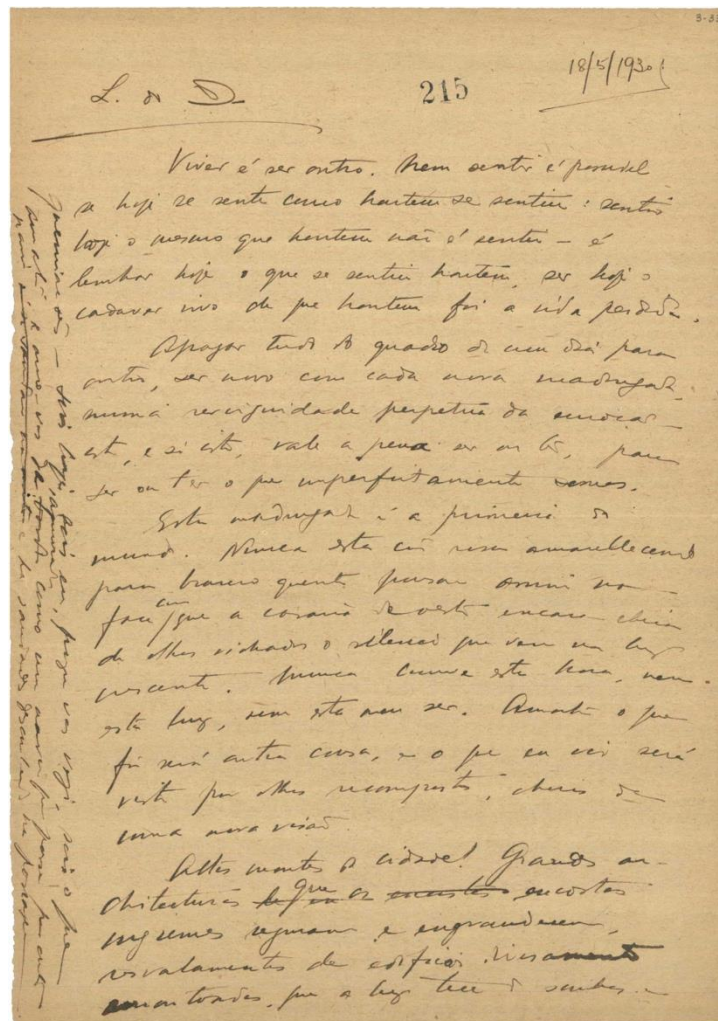 3-3
18/5/1930
L. do D.
215
Viver é ser outro. Nem sentir é possivel
se hoje se sente como hontem se sentiu: sentir
hoje o mesmo que hontem não é sentir – é
lembrar hoje o que se sentiu hontem, ser hoje o
cadaver vivo do que hontem foi a vida perdida.
Apagar tudo do quadro de um dia para
outro, ser novo com cada nova madrugada,
numa revirgindade perpetua da emoção –
isto, e só isto, vale a pena ser ou ter, para
ser ou ter o que imperfeitamente somos.
Esta madrugada é a primeira do
mundo. Nunca esta côr rosa amarellecendo
para branco quente pousou assim na
face com que a casaria de oeste encara cheia
de olhos vidrados o silencio que vem na luz
crescente. Nunca houve esta hora, nem
esta luz, nem este meu ser. Amanhã o que
fôr será outra coisa, e o que eu vir será
visto por olhos recompostos, cheios de
uma nova visão.
Altos montes da cidade! Grandes ar-
chitecturas que as encostas
ingremes seguram e engrandecem,
resvalamentos de edificios diversamente
amontoados, que a luz tece de sombras e
queimações – sois hoje, sois eu, porque vos vejo, sois o que
amanhã, e amo-vos da amurada como um navio que passa por outro
navio e ha saudades desconhecidas na passagem